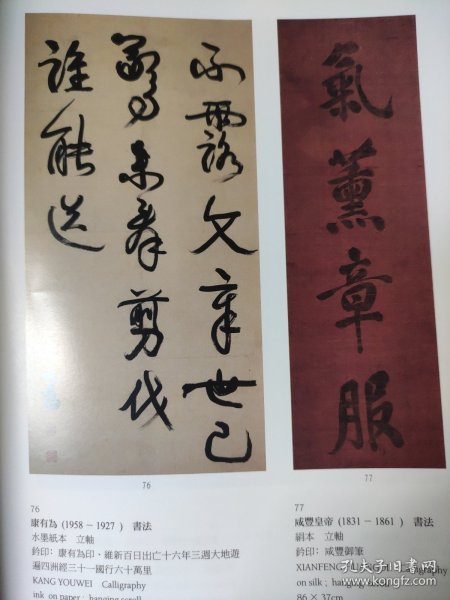 不露文章世已
驚未辭剪伐
誰能送
氣薰章服
76
77
76
康有為 (1958 － 1927 ) 書法
水墨紙本 立軸
鈐印：康有為印、維新百日出亡十六年三週大地遊
遍四洲經三十一國行六十萬里
KANG YOUWEI Calligraphy
ink on paper; hanging scroll
77
咸豐皇帝 (1831 － 1861 ) 書法
絹本 立軸
鈐印：咸豐御筆
XIANFENG
on silk ; hanging
86 × 37cm
孔夫子旧书网